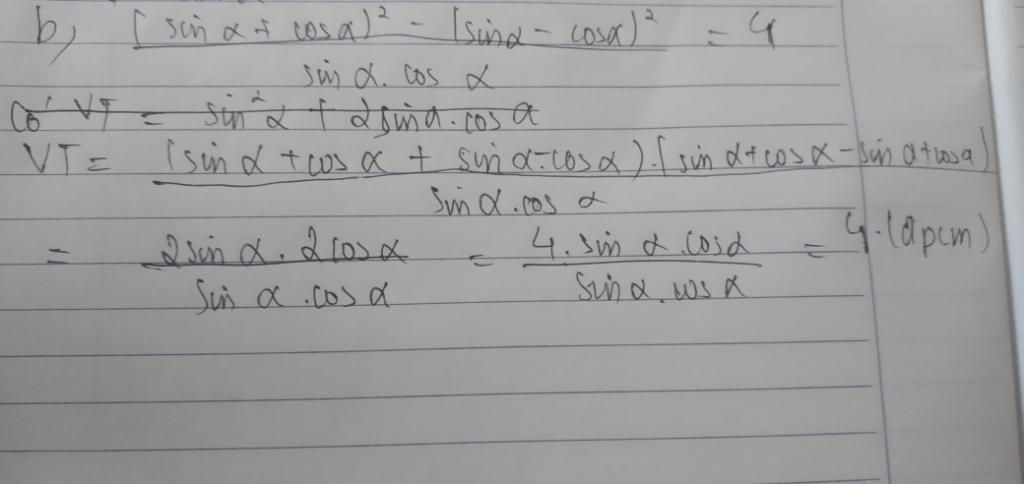 b, (sin α + cos α)² - (sin α - cos α)² / sin α . cos α = 4
Có VT = sin² α + 2 sin α . cos α
VT = (sin α + cos α + sin α - cos α) . (sin α + cos α - sin α + cos α) / sin α . cos α
= 2 sin α . 2 cos α / sin α . cos α = 4 . sin α . cos α / sin α . cos α = 4 . (đpcm)